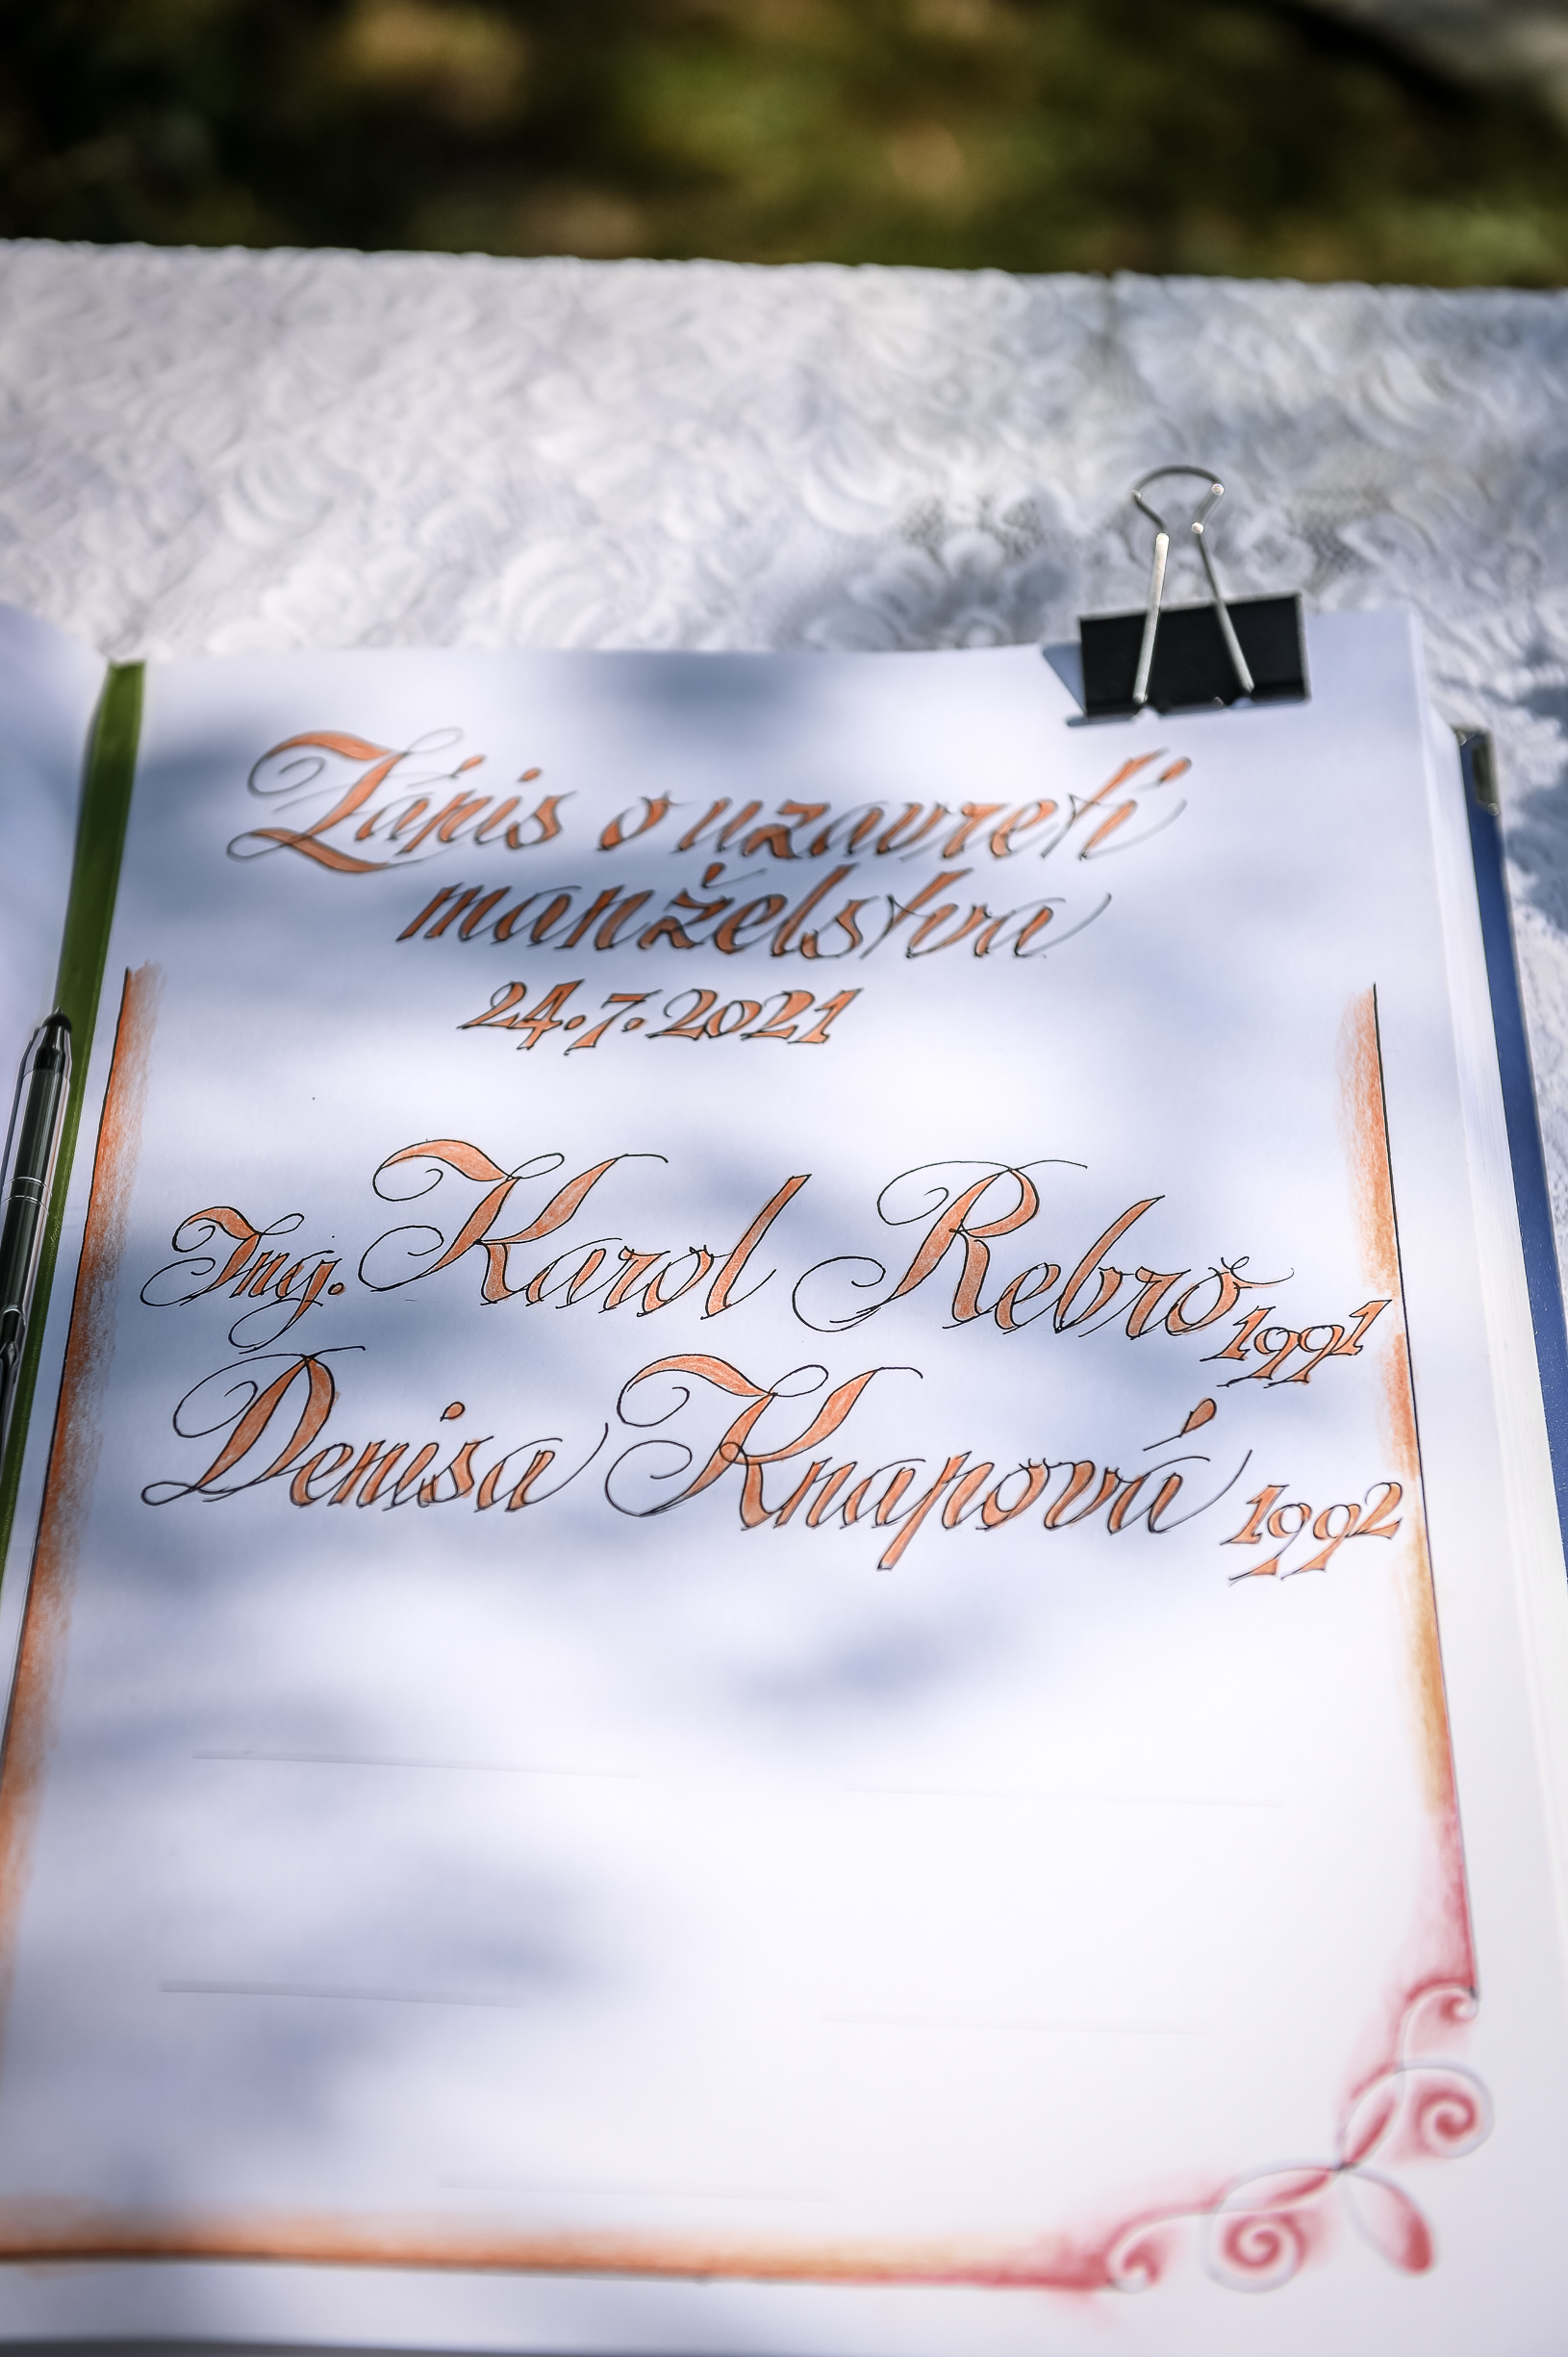 Zápis o uzavretí
manželstva
24.7.2021
Ing. Karol Rebro 1991
Denisa Knapová 1992